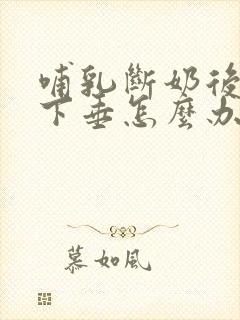 哺乳斷奶後
下垂怎麼办
慕如風